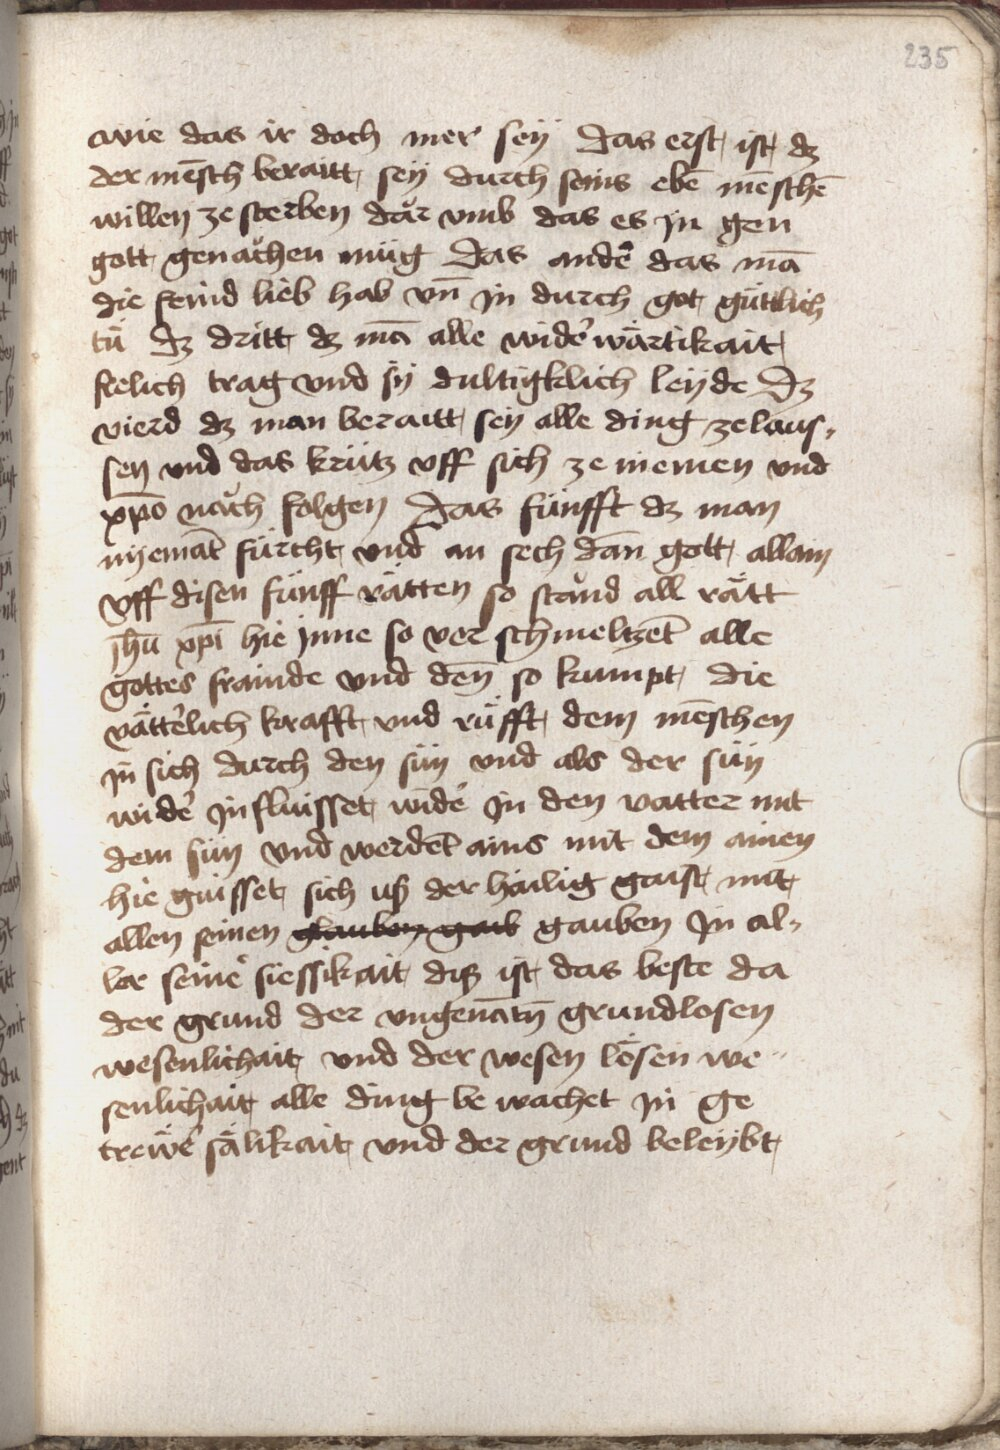 235
wie das ir doch mer seÿ Das erst ist dz
der mēsch beraitt seÿ durch seins ebē mēschē
willen ze sterben dǎr vmb das es jn gen
gott genǎchen müg Das andē das mā
die feind lieb hab vn̄ jn durch got güttlich
tü dz dritt dz mā alle widerwärtikait
frelich trag vnd sÿ dultigklich leÿde Dz
vierd dz man beraitt seÿ alle ding ze laus-
sen vnd das krütz vff sich ze niemen vnd
xp̄o nǎch folgen Das fünfft dz man
nÿemāt fürcht vnd an sech dān gott allain
vff disen fünff rätten so stǎnd all rätt
Jh̄u xp̄i hie jnne so ver schmeltzēt alle
gottes frainde vnd dēn so kumpt die
vätterlich krafft vnd rüfft dem mēschen
jn sich durch den sün vnd als der sün
wider jn fluisset wider jn den vatter mit
dem sün vnd werdēt ains mit dem ainen
hie guisset sich uß der hailig gaist mit
allen seinen glauben gaub gauben Jn al-
ler seiner siessikait diß ist das beste da
der grund der vngenātn̄ grundlosen
wesenlichait vnd der wesen lösen we-
senlichait alle ding be wachet jn ge
trewer sälikait vnd der grund beleybt